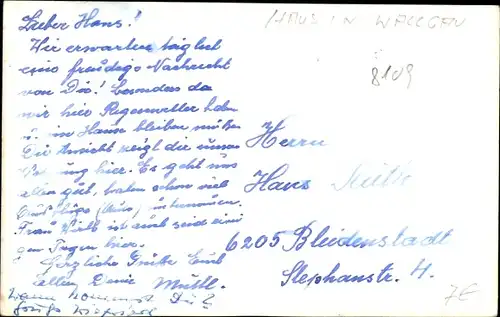 Lieber Hans!
Wir erwarten täglich
eine freudige Nachricht
von Dir! besonders da
wir hier Regenwetter haben
u. im Hause bleiben müßen
Die Ansicht zeigt dir unsere
hier. Es geht uns
allen gut, haben schon viel
Ausflüge (Auto) unternommen.
Frau ist auch seid eini
gen Tagen hier.
Herzliche Grüße Euch
allen Deine Mutti.
Wann kommst Du?
HAUS IN WALLGAU
8109
Herrn
Hans
6205 Bleidenstadt
Stephanstr. 4.
7E